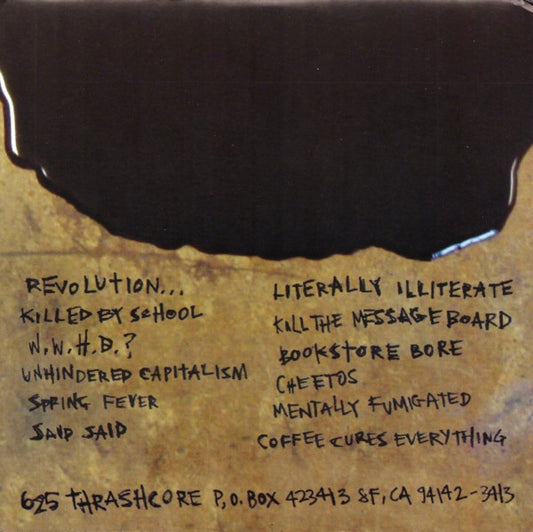 REVOLUTION...
KILLED BY SCHOOL
W.W.H.D.?
UNHINDERED CAPITALISM
SPRING FEVER
SAID SAID
LITERALLY ILLITERATE
KILL THE MESSAGE BOARD
BOOKSTORE BORE
CHEETOS
MENTALLY FUMIGATED
COFFEE CURES EVERYTHING
625 THRASHCORE P.O. BOX 423413 SF, CA 94142-3413